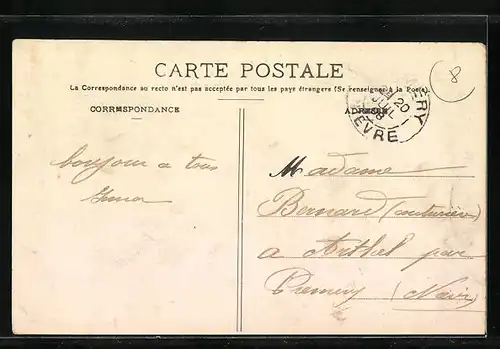 CARTE POSTALE
La Correspondance au recto n'est pas acceptée par tous les pays étrangers (Se renseigner à la Poste)
8
ERY
20
JUIL
08
NIEVRE
CORRESPONDANCE
ADRESSE
bonjour a tous
Madame
Bernard (couturière)
a Arthel par
Premery (Nièv